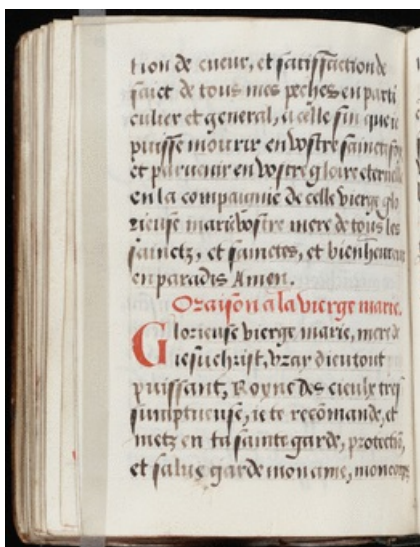 tion de cueur, et satisfaction de
faict de tous mes peches en parti
culier et general, a celle fin que ie
puisse mourir en vostre saincte foy
et paruenir en vostre gloire eternelle
en la compaignie de celle vierge glo
rieuse marie vostre mere de tous les
sainctz, et sainctes, et bienheureux
en paradis Amen.
Oraison a la vierge marie.
Glorieuse vierge marie, mere de
iesuchrist, vray dieu tout
puissant, Royne des cieulx tres
sumptueuse, ie te recōmande, et
metz en ta sainte garde, protectiō,
et salus garde mon ame, mon corps